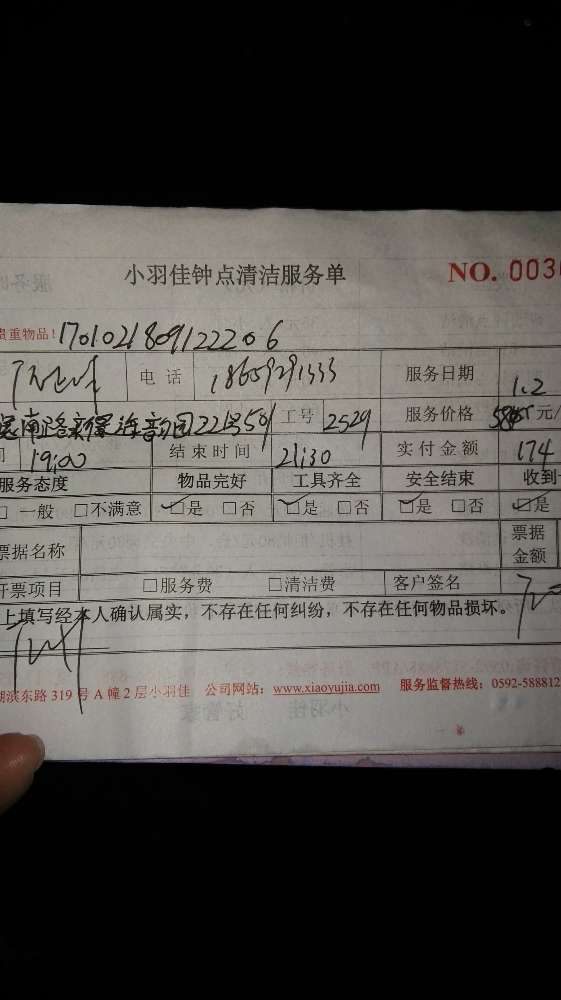 小羽佳钟点清洁服务单 NO. 003
贵重物品! 170102180912 2206
电话 18659291333 服务日期 1.2
南路 221号501 工号 2529 服务价格 元/
间 19:00 结束时间 21:30 实付金额 174
服务态度 物品完好 工具齐全 安全结束 收到
□一般 □不满意 □是 □否 □是 □否 □是 □否 □是
票据名称 票据金额
开票项目 □服务费 □清洁费 客户签名
上填写经本人确认属实，不存在任何纠纷，不存在任何物品损坏。
湖滨东路 319 号 A 幢 2 层小羽佳 公司网站：www.xiaoyujia.com 服务监督热线：0592-588812